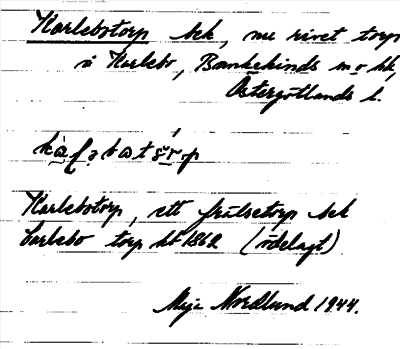 Karlebotorp bek, nu rivet torp
i Karlebo, Bankekinds sn o hd,
Östergötlands l.
Karlebotorp, ett frälsetorp bek
Carlebo torp Jb 1862 (ödelagt)
Maja Nordlund 1944.